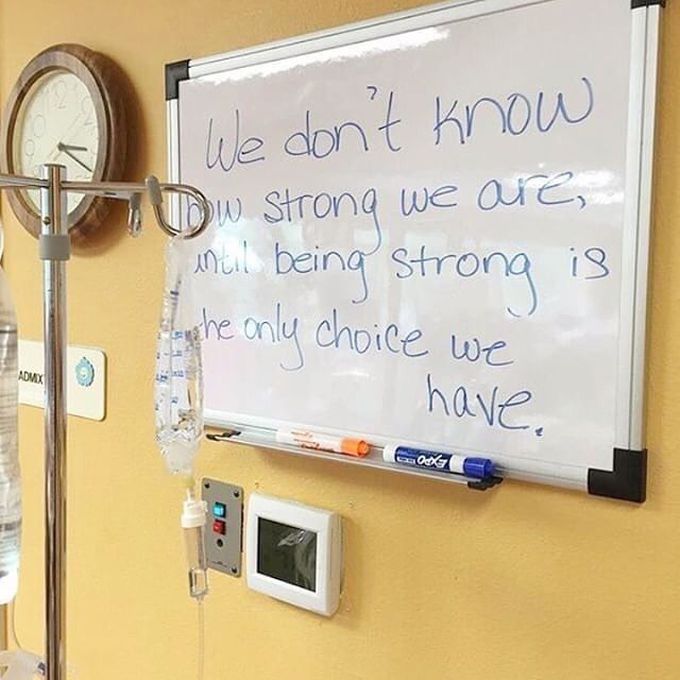 We don't know
how strong we are,
until being strong is
the only choice we
have.
EXPO
ADMIX
12